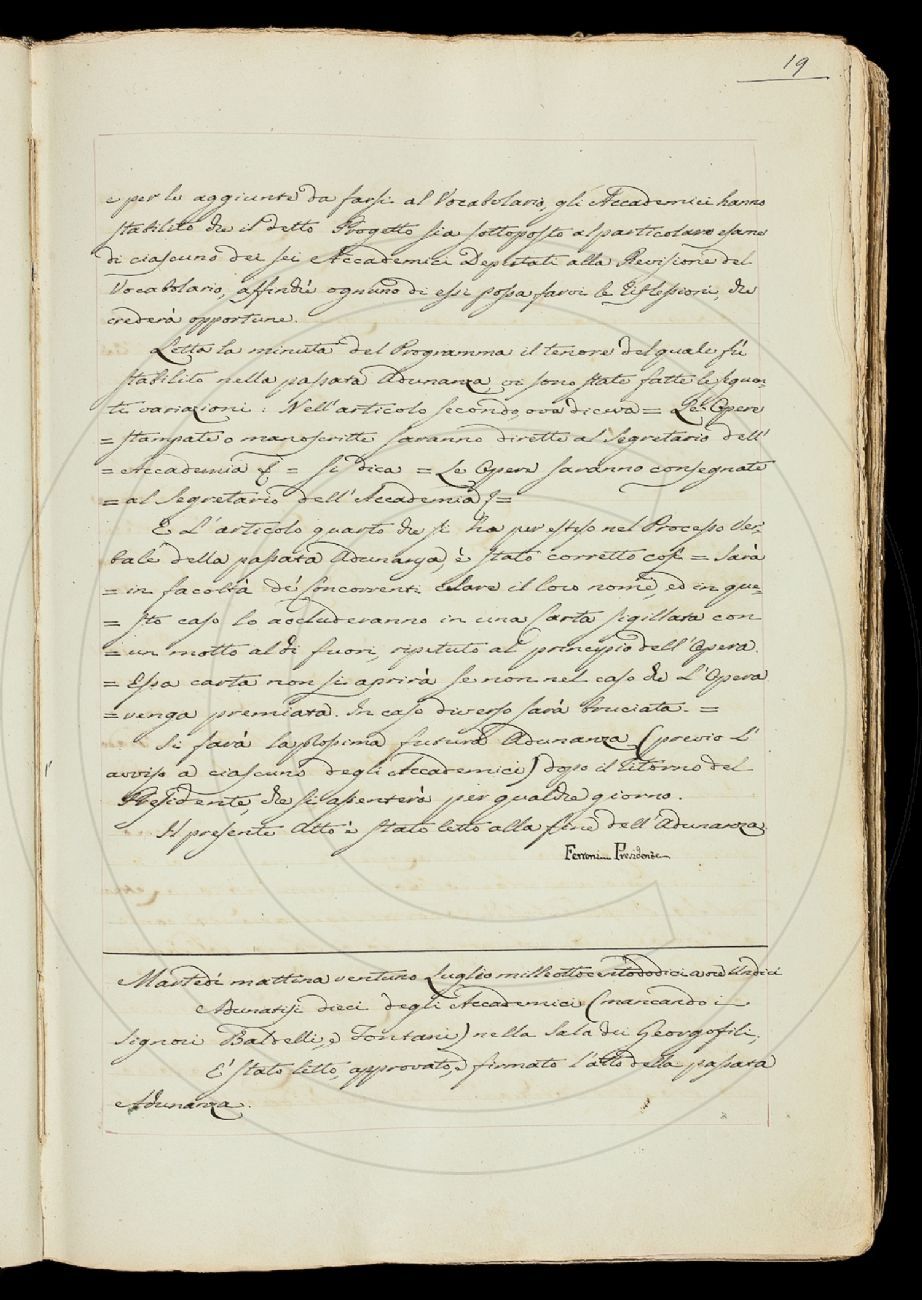 19
e per le aggiunte da farsi al Vocabolario, gli Accademici hanno
stabilito che il detto Progetto sia sottoposto al particolare esame
di ciascuno dei sei Accademici Deputati alla Revisione del
Vocabolario, affinchè ognuno di essi possa farvi le riflessioni, che
crederà opportune.
Letta la minuta del Programma il tenore del quale fù
stabilito nella passata Adunanza, vi sono state fatte le seguen-
ti variazioni: Nell'articolo secondo, ove diceva = Le Opere
= stampate o manoscritte saranno dirette al Segretario dell'
= Accademia = si dica = Le Opere saranno consegnate
= al Segretario dell'Accademia =
E L'articolo quarto che si ha per esteso nel Processo Ver-
bale della passata Adunanza, è stato corretto così = Sarà
= in facoltà de' Concorrenti celare il loro nome, ed in que=
= sto caso lo accluderanno in una Carta sigillata con
= un motto al di fuori, ripetuto al principio dell'Opera.
= Essa carta non si aprirà se non nel caso che L'Opera
= venga premiata. In caso diverso sarà bruciata. =
Si farà la prossima futura Adunanza (previo l'
avviso a ciascuno degli Accademici) dopo il ritorno del
Presidente, che si assenterà per qualche giorno.
Il presente Atto è stato letto alla fine dell'Adunanza.
Ferroni Presidente
Martedì mattina ventuno Luglio milleottocentododici a ore Undici
Adunatisi dieci degli Accademici (mancando i
Signori Baldelli, e Fontani) nella Sala dei Georgofili,
E' stato letto, approvato, e firmato l'atto della passata
Adunanza.